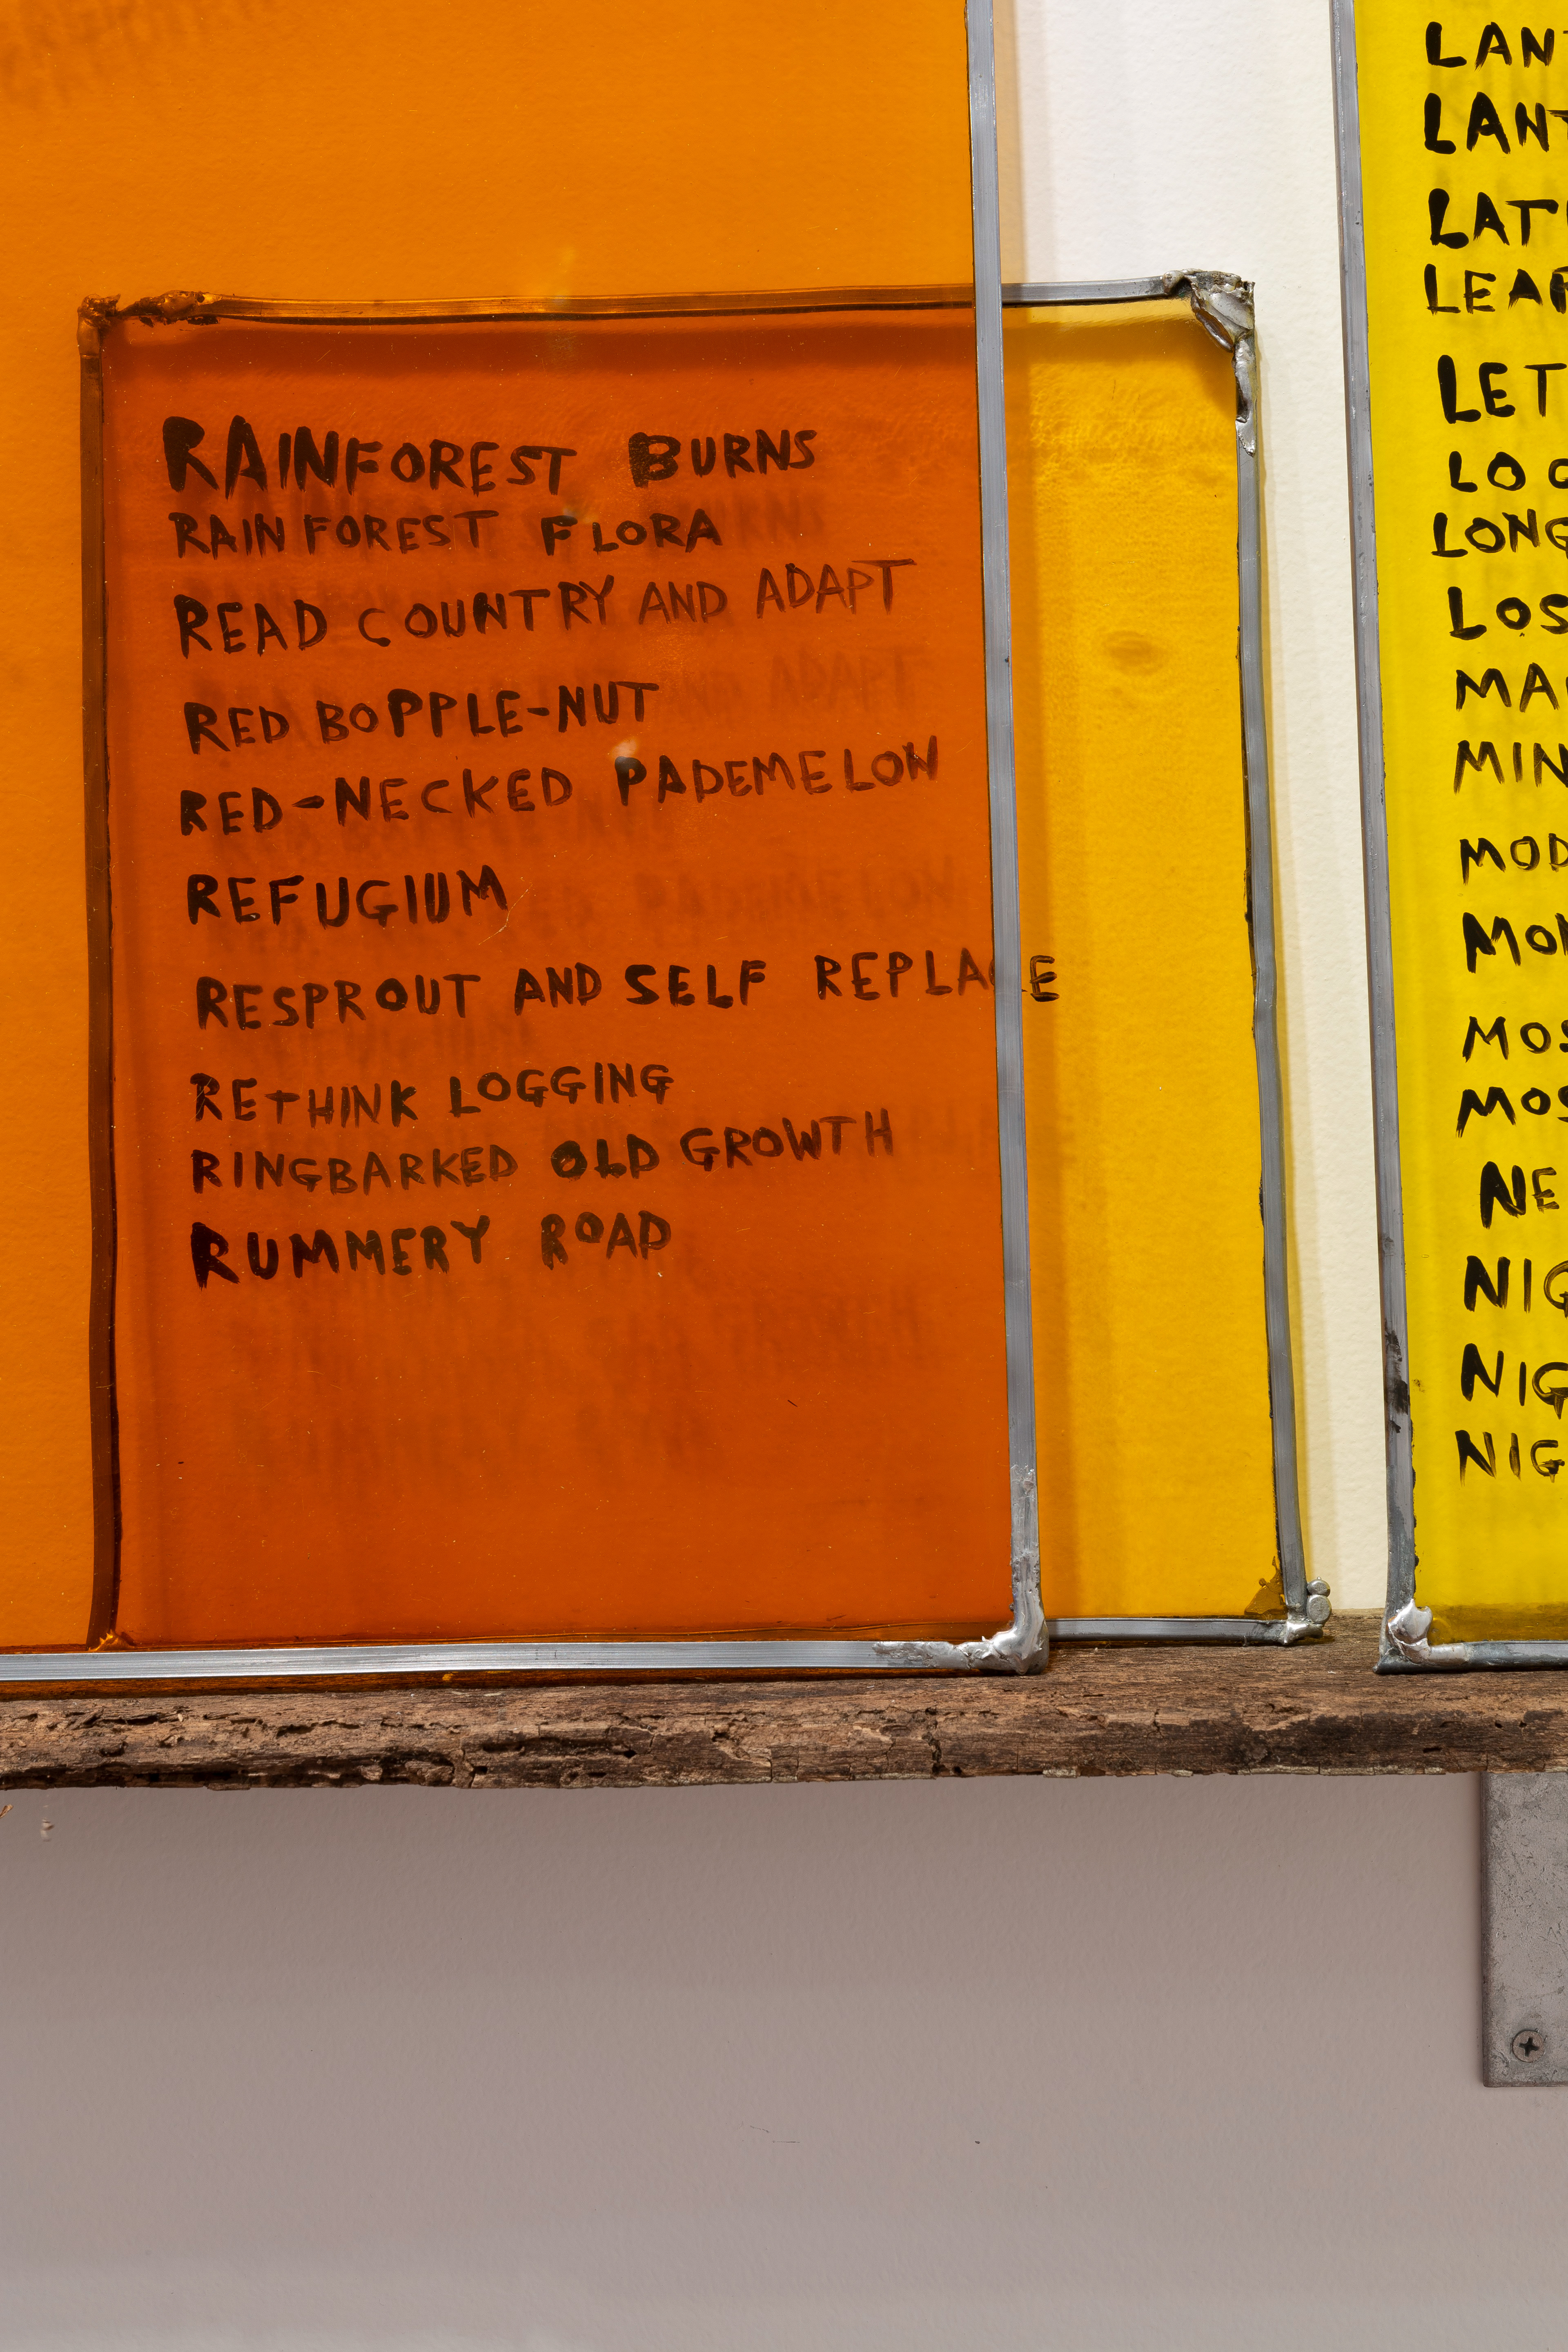 RAINFOREST BURNS
RAINFOREST FLORA
READ COUNTRY AND ADAPT
RED BOPPLE-NUT
RED-NECKED PADEMELON
REFUGIUM
RESPROUT AND SELF REPLACE
RETHINK LOGGING
RINGBARKED OLD GROWTH
RUMMERY ROAD
LAN
LANT
LAT
LEAR
LET
LO
LONG
LOS
MA
MIN
MOD
MO
MOS
MOS
NE
NIG
NIG
NIG